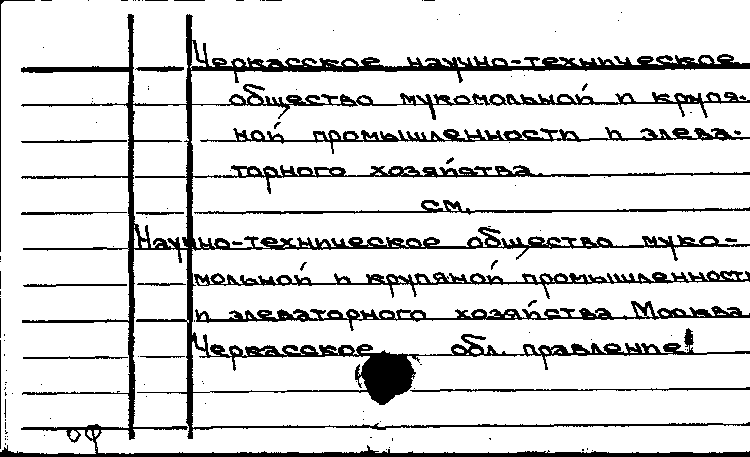 Черкасское научно-техническое
общество мукомольной и крупя-
ной промышленности и элева-
торного хозяйства.
см.
Научно-техническое общество муко-
мольной и крупяной промышленности
и элеваторного хозяйства. Москва.
Черкасское обл. правление!
оф